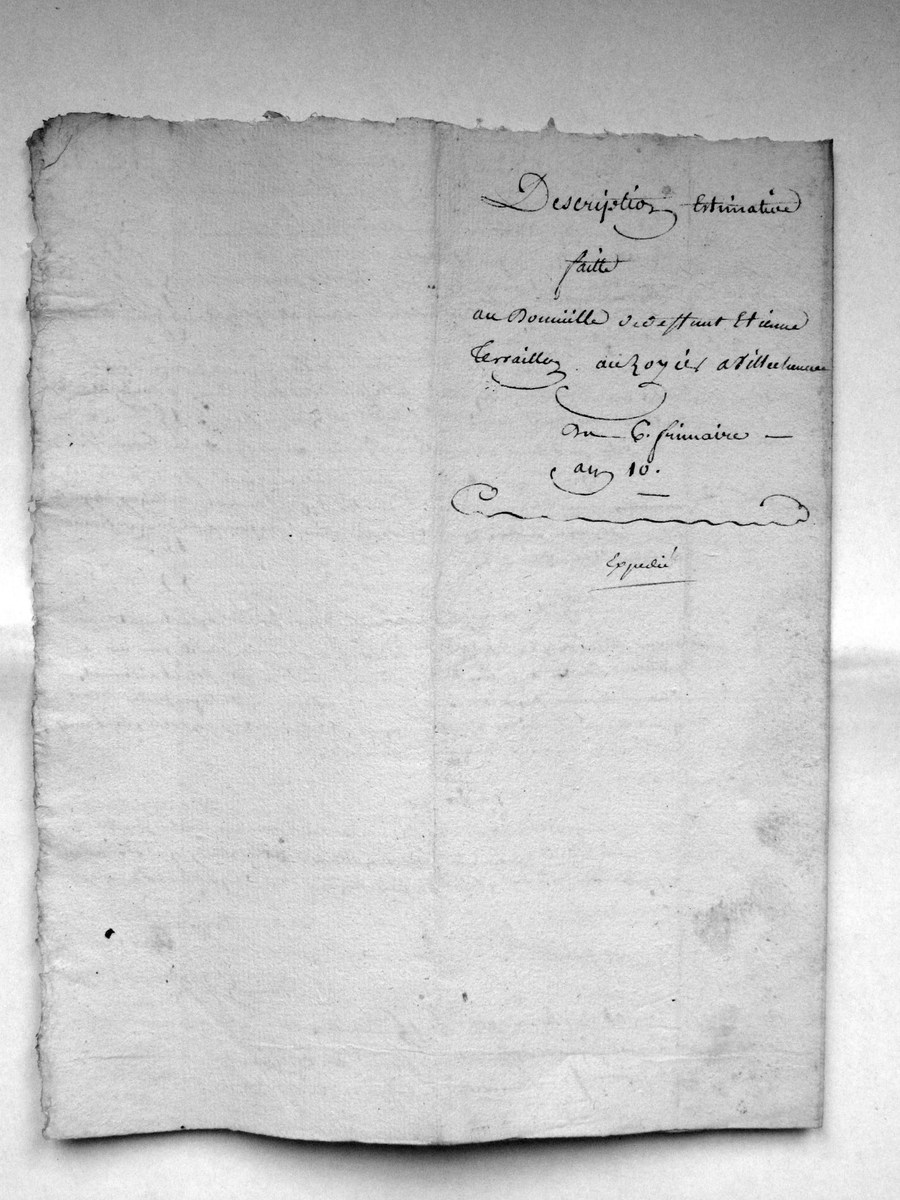 Description Estimative
faitte
au Domicille de deffunt Etienne
Terraillon au Royer a Villechenève
Du 6. frimaire
an 10.
Expedié